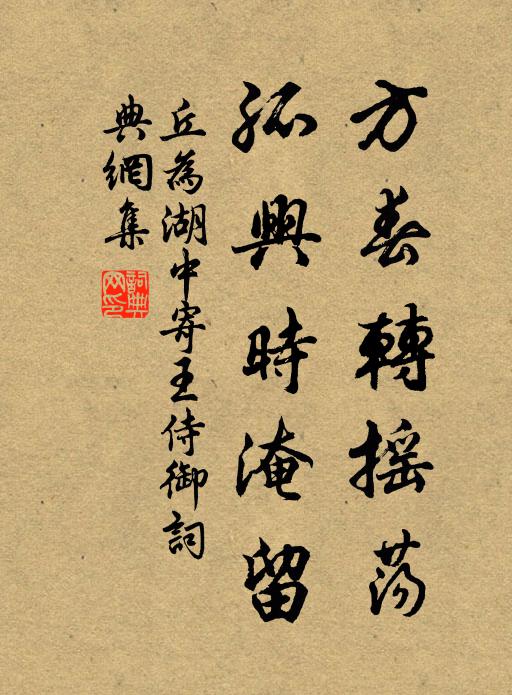 方春轉搖蕩
孤興時淹留
丘為湖中寄王侍御詞
典網集
詞典网印